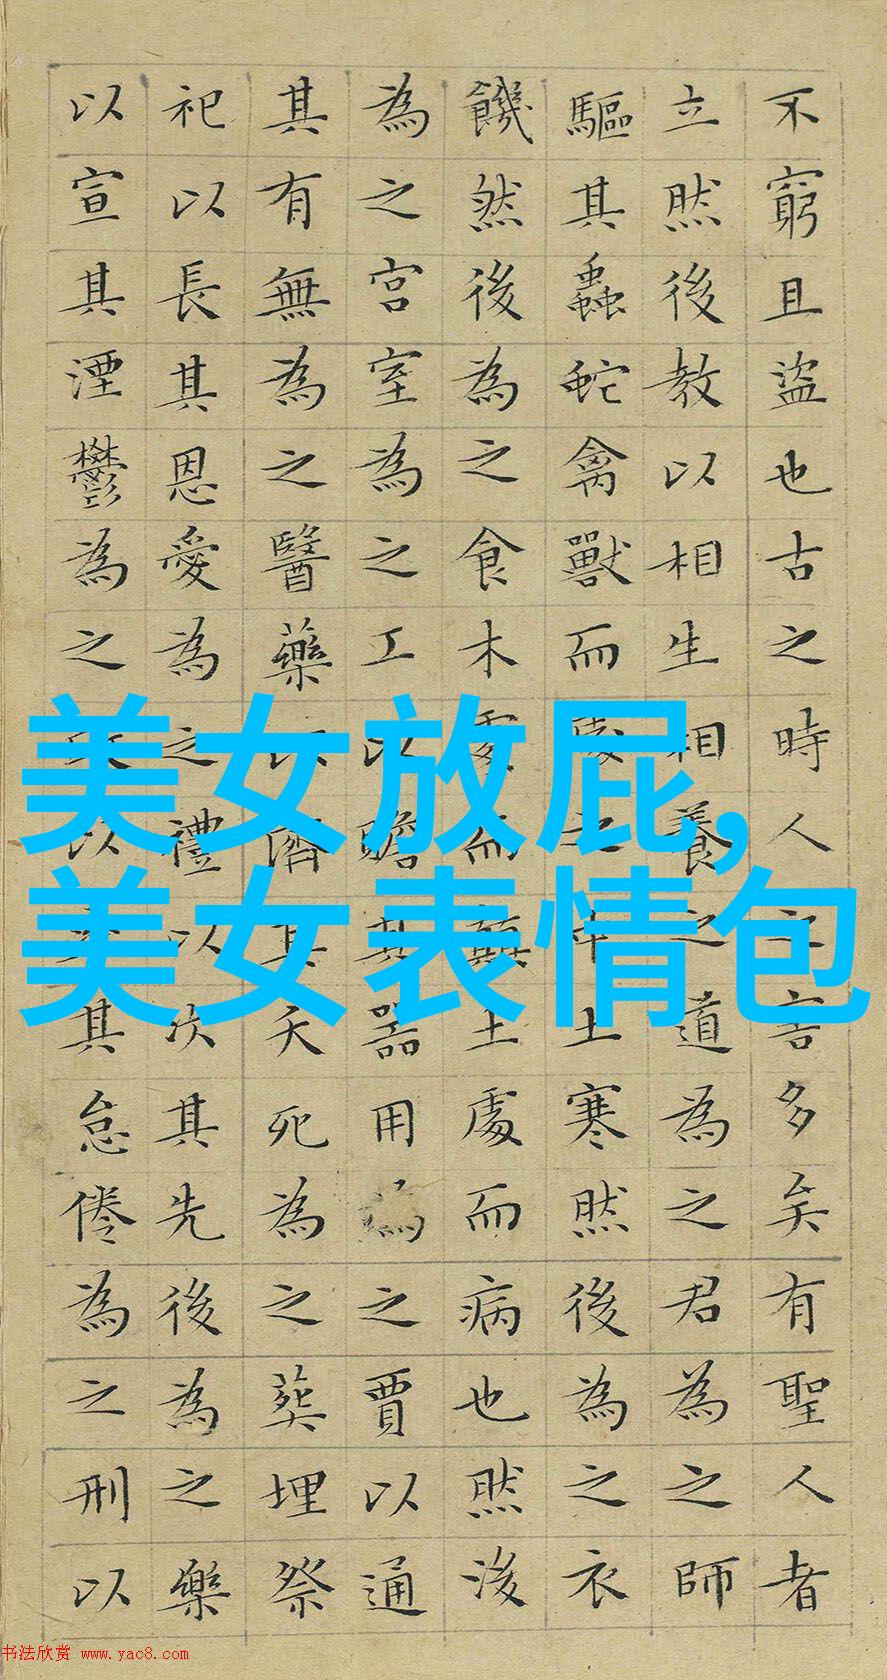 不窮且盜也古之時人之害多矣有聖人者
立然後教以相生相養之道為之君為之師
驅其蟲蛇禽獸而處之中土寒然後為之衣
饑然後為之食木處而顛土處而病也然後
為之宮室為之工以贍其器用為之賈以通
其有無為之醫藥以濟其夭死為之葬埋祭
祀以長其恩愛為之禮以次其先後為之樂
以宣其湮鬱為之以其怠倦為之刑以
美女放屁,
美女表情包
书法欣赏 www.yac8.com